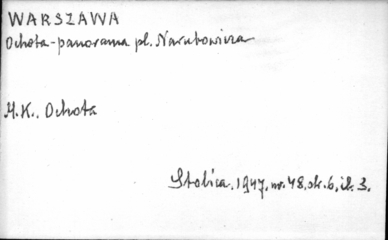 WARSZAWA
Ochota-panorama pl. Narutowicza
H.K., Ochota
Stolica, 1947, nr. 48, str. 6, il. 3.